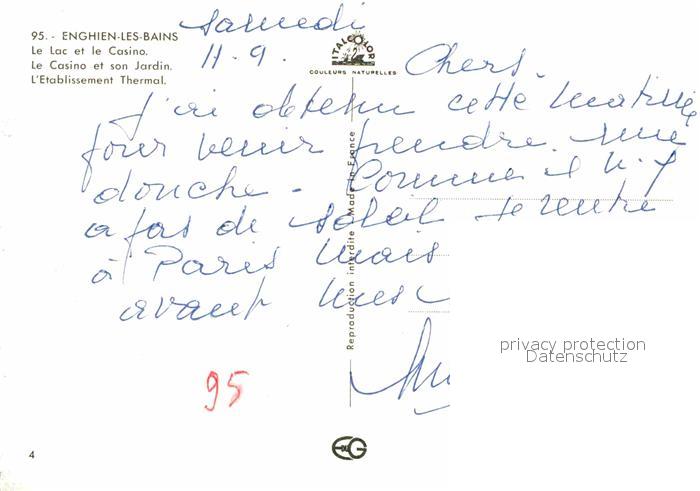 95. - ENGHIEN-LES-BAINS
Le Lac et le Casino.
Le Casino et son Jardin.
L'Etablissement Thermal.
samedi
11.9.
ITALCOLOR
COULEURS NATURELLES
Chers.
j'ai obtenu cette matinée
pour venir prendre une
douche - Comme il n'y
a pas de soleil je rentre
à Paris mais
avant
Reproduction interdite - Made in France
privacy protection
Datenschutz
95
4